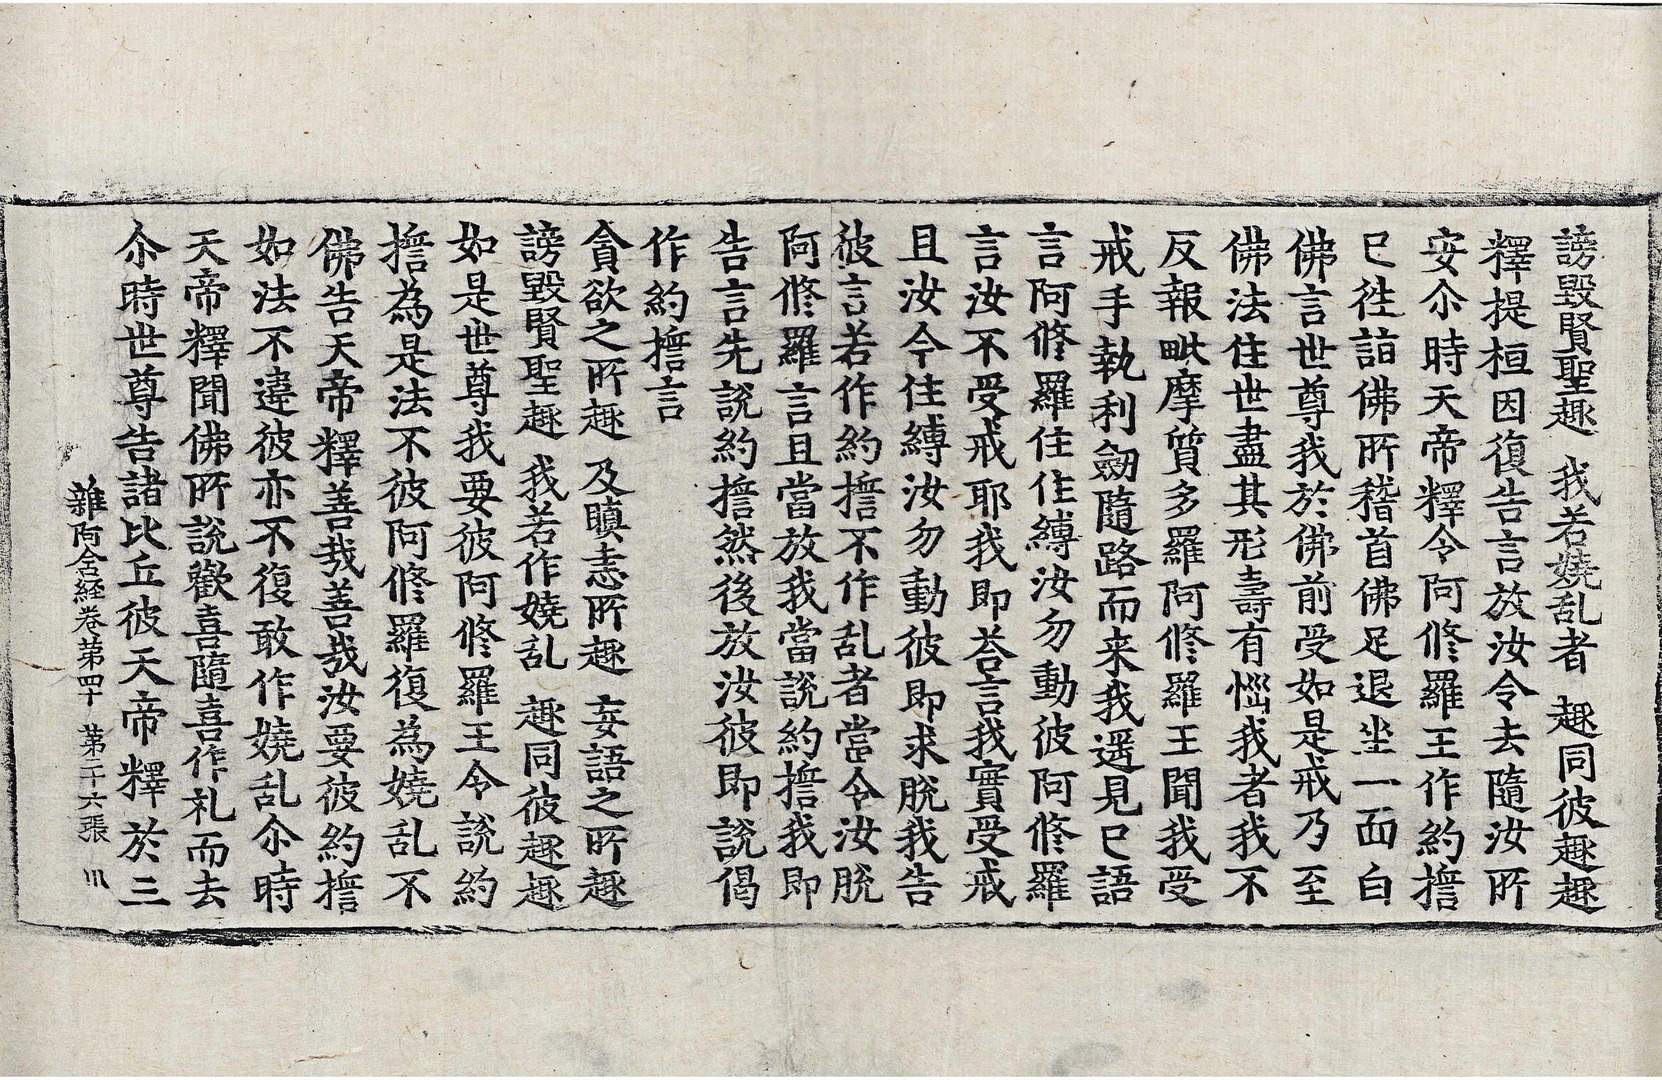 謗毀賢聖趣 我若嬈乱者 趣同彼趣趣
釋提桓因復告言放汝令去隨汝所
安尒時天帝釋令阿修羅王作約擔
已往詣佛所稽首佛足退坐一面白
佛言世尊我於佛前受如是戒乃至
佛法住世盡其形壽有惱我者我不
反報毗摩質多羅阿修羅王聞我受
戒手執利劒隨路而来我遥見已語
言阿修羅住住縛汝勿動彼阿修羅
言汝不受戒耶我即荅言我實受戒
且汝今住縛汝勿動彼即求脫我告
彼言若作約擔不作乱者當令汝脫
阿修羅言且當放我當說約擔我即
告言先說約擔然後放汝彼即說偈
作約擔言
貪欲之所趣 及瞋恚所趣 妄語之所趣
謗毀賢聖趣 我若作嬈乱 趣同彼趣趣
如是世尊我要彼阿修羅王令說約
擔為是法不彼阿修羅復為嬈乱不
佛告天帝釋善哉善哉汝要彼約擔
如法不違彼亦不復敢作嬈乱尒時
天帝釋聞佛所說歡喜隨喜作礼而去
尒時世尊告諸比丘彼天帝釋於三
雜阿含経卷第四十 第二十六張 川